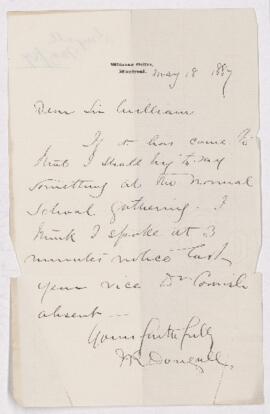 Witness Office,
Montreal.
May 18 1887
Dear Sir William
If it has come to
that I shall try to say
something at the Normal
School gathering. I
think I spoke at 3
minutes notice last
year vice Dr Cornish
absent —
Yours faithfully
JR Dougall.